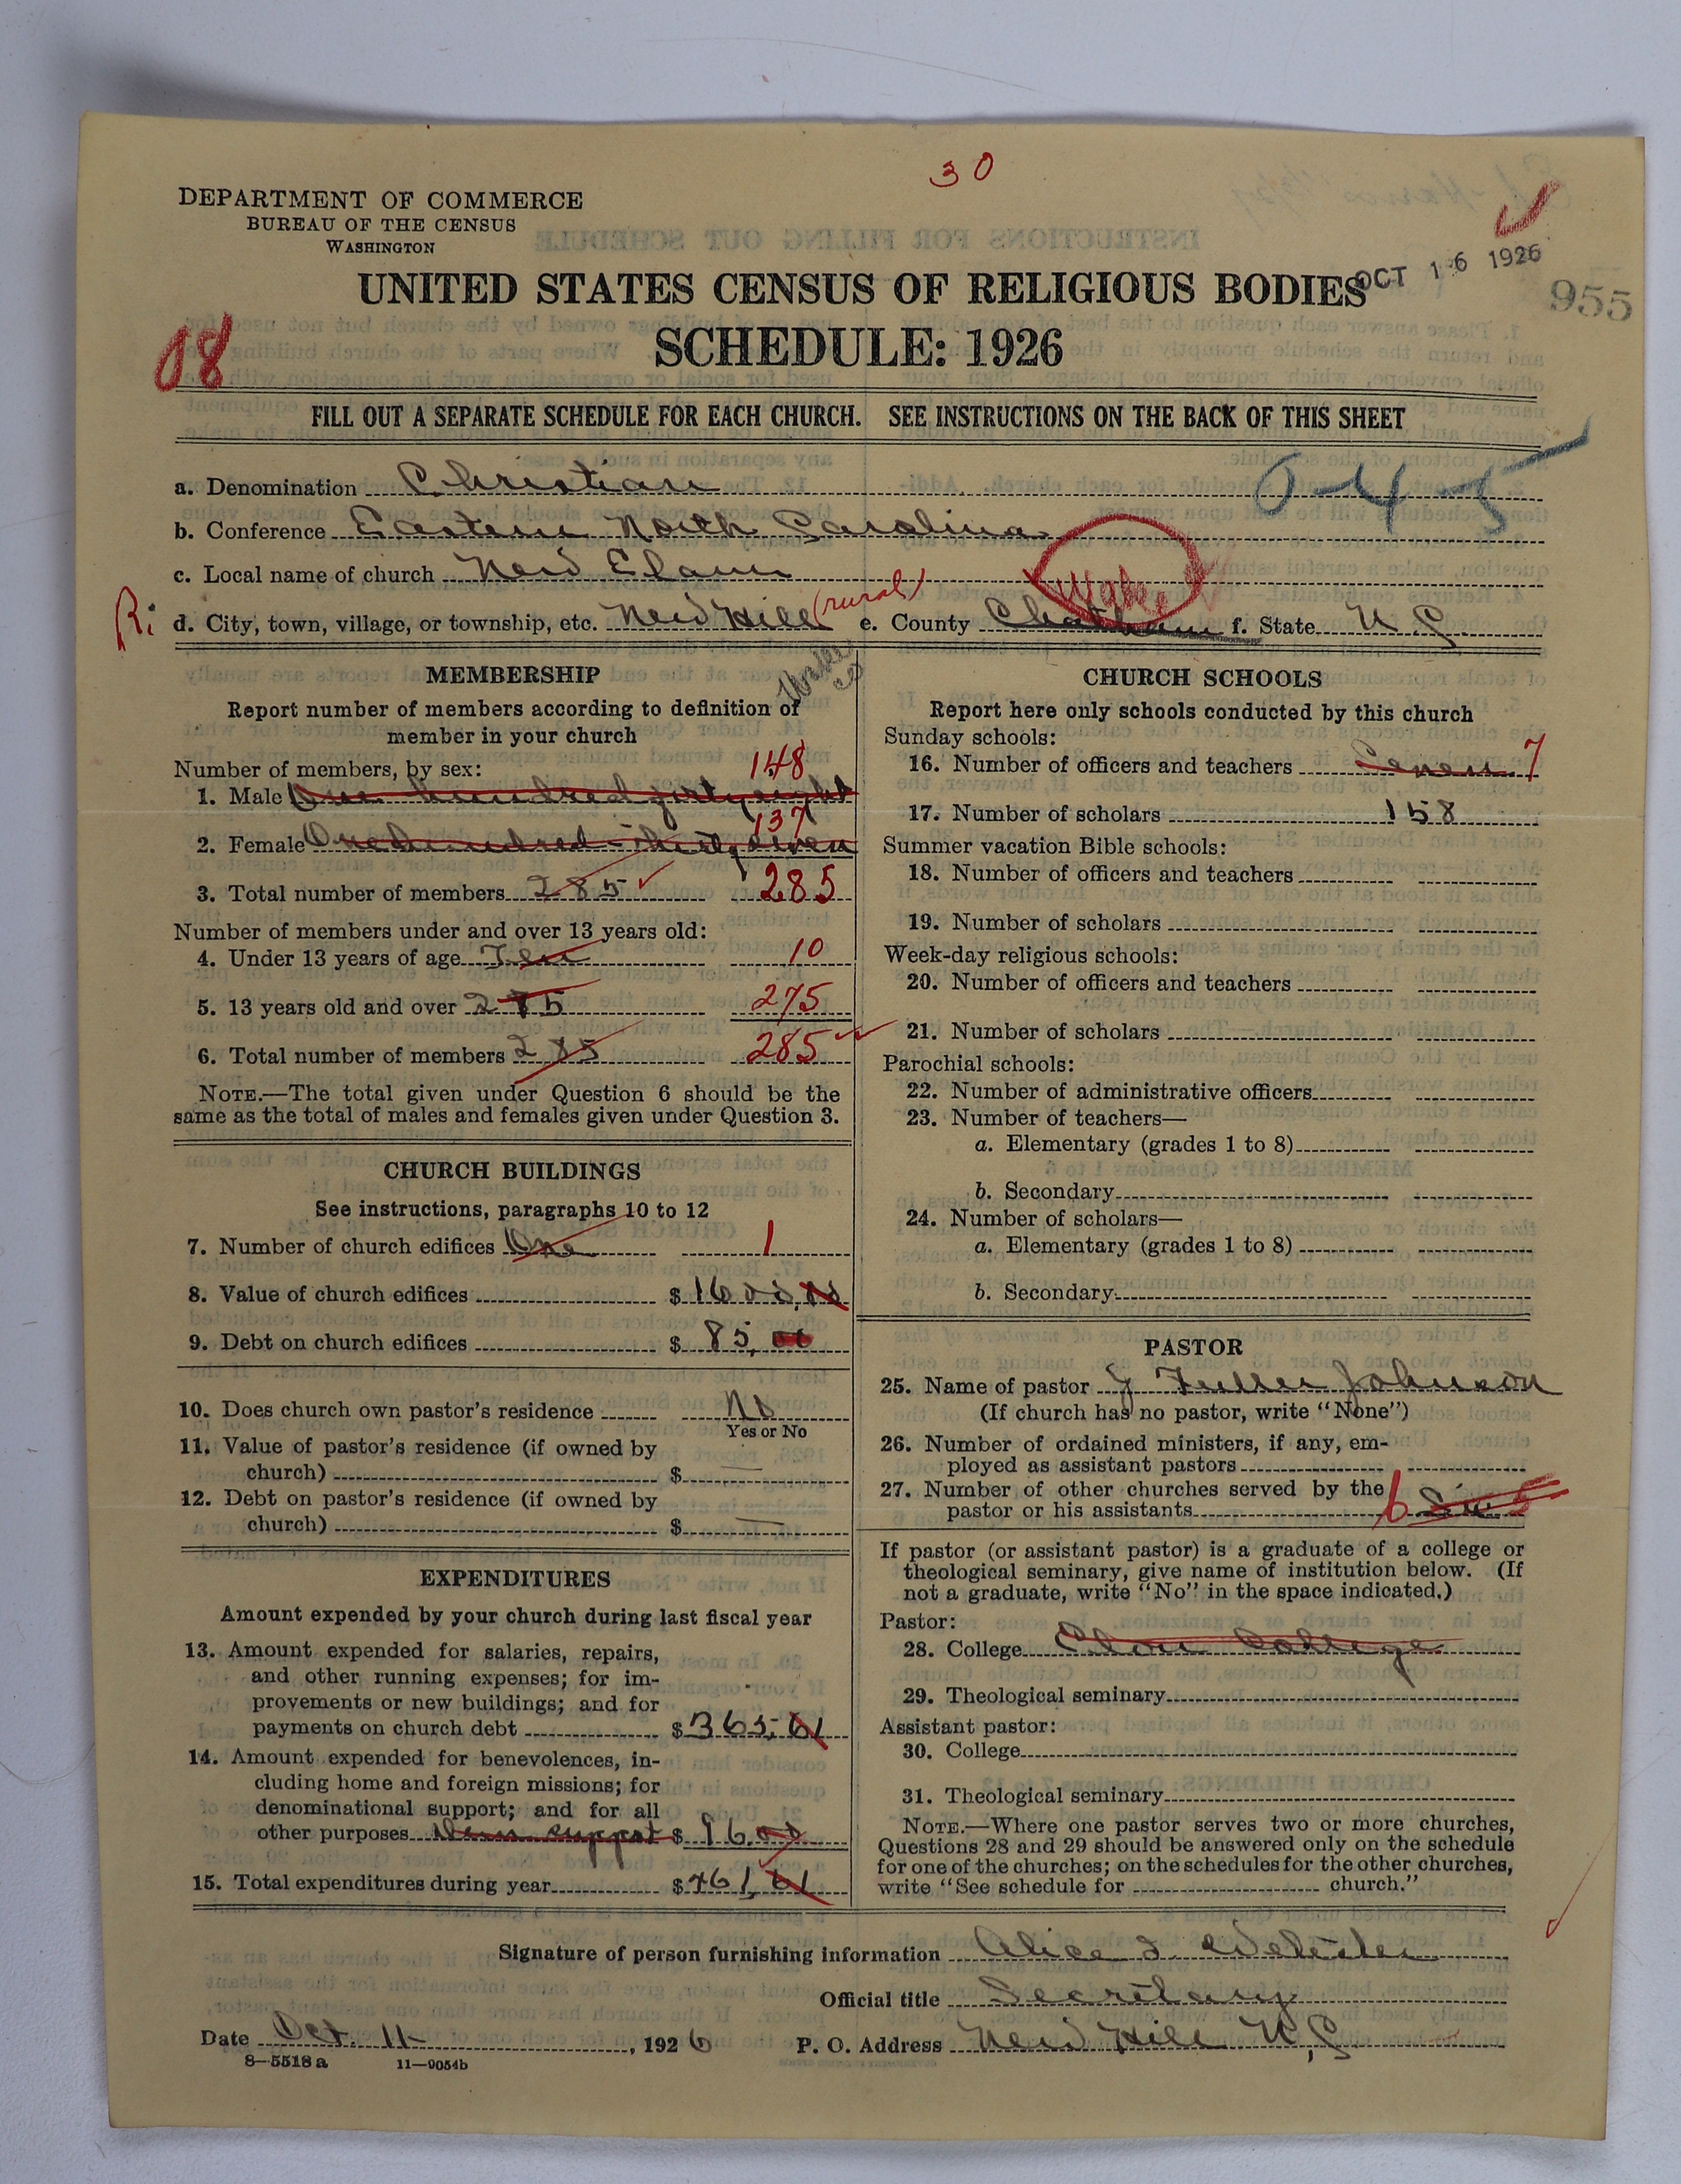 30
DEPARTMENT OF COMMERCE
BUREAU OF THE CENSUS
WASHINGTON
OCT 16 1926
955
UNITED STATES CENSUS OF RELIGIOUS BODIES
SCHEDULE: 1926
08
FILL OUT A SEPARATE SCHEDULE FOR EACH CHURCH. SEE INSTRUCTIONS ON THE BACK OF THIS SHEET
a. Denomination Christian
0-4-5
b. Conference Eastern North Carolina
c. Local name of church New Elam
Wake
R. d. City, town, village, or township, etc. New Hill (rural) e. County Chatham f. State N C
MEMBERSHIP
Report number of members according to definition of
member in your church
Number of members, by sex:
148
1. Male One hundred forty eight
137
2. Female One hundred thirty seven
3. Total number of members 285 285
Number of members under and over 13 years old:
4. Under 13 years of age Ten 10
5. 13 years old and over 275 275
6. Total number of members 285 285
NOTE.—The total given under Question 6 should be the
same as the total of males and females given under Question 3.
CHURCH BUILDINGS
See instructions, paragraphs 10 to 12
7. Number of church edifices One 1
8. Value of church edifices $ 1600.00
9. Debt on church edifices $ 85.00
10. Does church own pastor's residence No
Yes or No
11. Value of pastor's residence (if owned by
church) $ —
12. Debt on pastor's residence (if owned by
church) $ —
EXPENDITURES
Amount expended by your church during last fiscal year
13. Amount expended for salaries, repairs,
and other running expenses; for im-
provements or new buildings; and for
payments on church debt $ 365.61
14. Amount expended for benevolences, in-
cluding home and foreign missions; for
denominational support; and for all
other purposes support $ 96.00
15. Total expenditures during year $ 461.61
CHURCH SCHOOLS
Report here only schools conducted by this church
Sunday schools:
16. Number of officers and teachers Seven 7
17. Number of scholars 158
Summer vacation Bible schools:
18. Number of officers and teachers
19. Number of scholars
Week-day religious schools:
20. Number of officers and teachers
21. Number of scholars
Parochial schools:
22. Number of administrative officers
23. Number of teachers—
a. Elementary (grades 1 to 8)
b. Secondary
24. Number of scholars—
a. Elementary (grades 1 to 8)
b. Secondary
PASTOR
25. Name of pastor J Fuller Johnson
(If church has no pastor, write "None")
26. Number of ordained ministers, if any, em-
ployed as assistant pastors
27. Number of other churches served by the
pastor or his assistants 6 Six 5
If pastor (or assistant pastor) is a graduate of a college or
theological seminary, give name of institution below. (If
not a graduate, write "No" in the space indicated.)
Pastor:
28. College Elon College
29. Theological seminary
Assistant pastor:
30. College
31. Theological seminary
NOTE.—Where one pastor serves two or more churches,
Questions 28 and 29 should be answered only on the schedule
for one of the churches; on the schedules for the other churches,
write "See schedule for church."
Signature of person furnishing information Alice I. Webster
Official title Secretary
Date Oct. 11- , 1926 P. O. Address New Hill N, C
8—5518 a 11—9054b